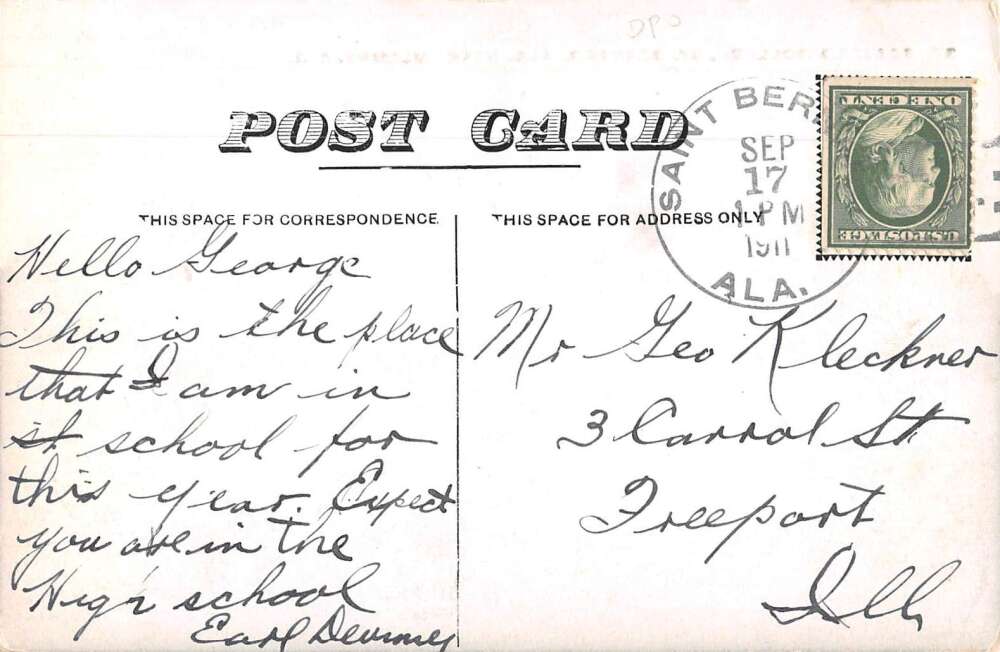 DPO
POST CARD
THIS SPACE FOR CORRESPONDENCE.
THIS SPACE FOR ADDRESS ONLY
SAINT BER
SEP
17
1 PM
1911
ALA.
ONE CENT
U.S. POSTAGE
Hello George
This is the place
that I am in
st school for
this year. Expect
you are in the
High school
Earl
Mr Geo Kleckner
3 Carrol St.
Freeport
Ill